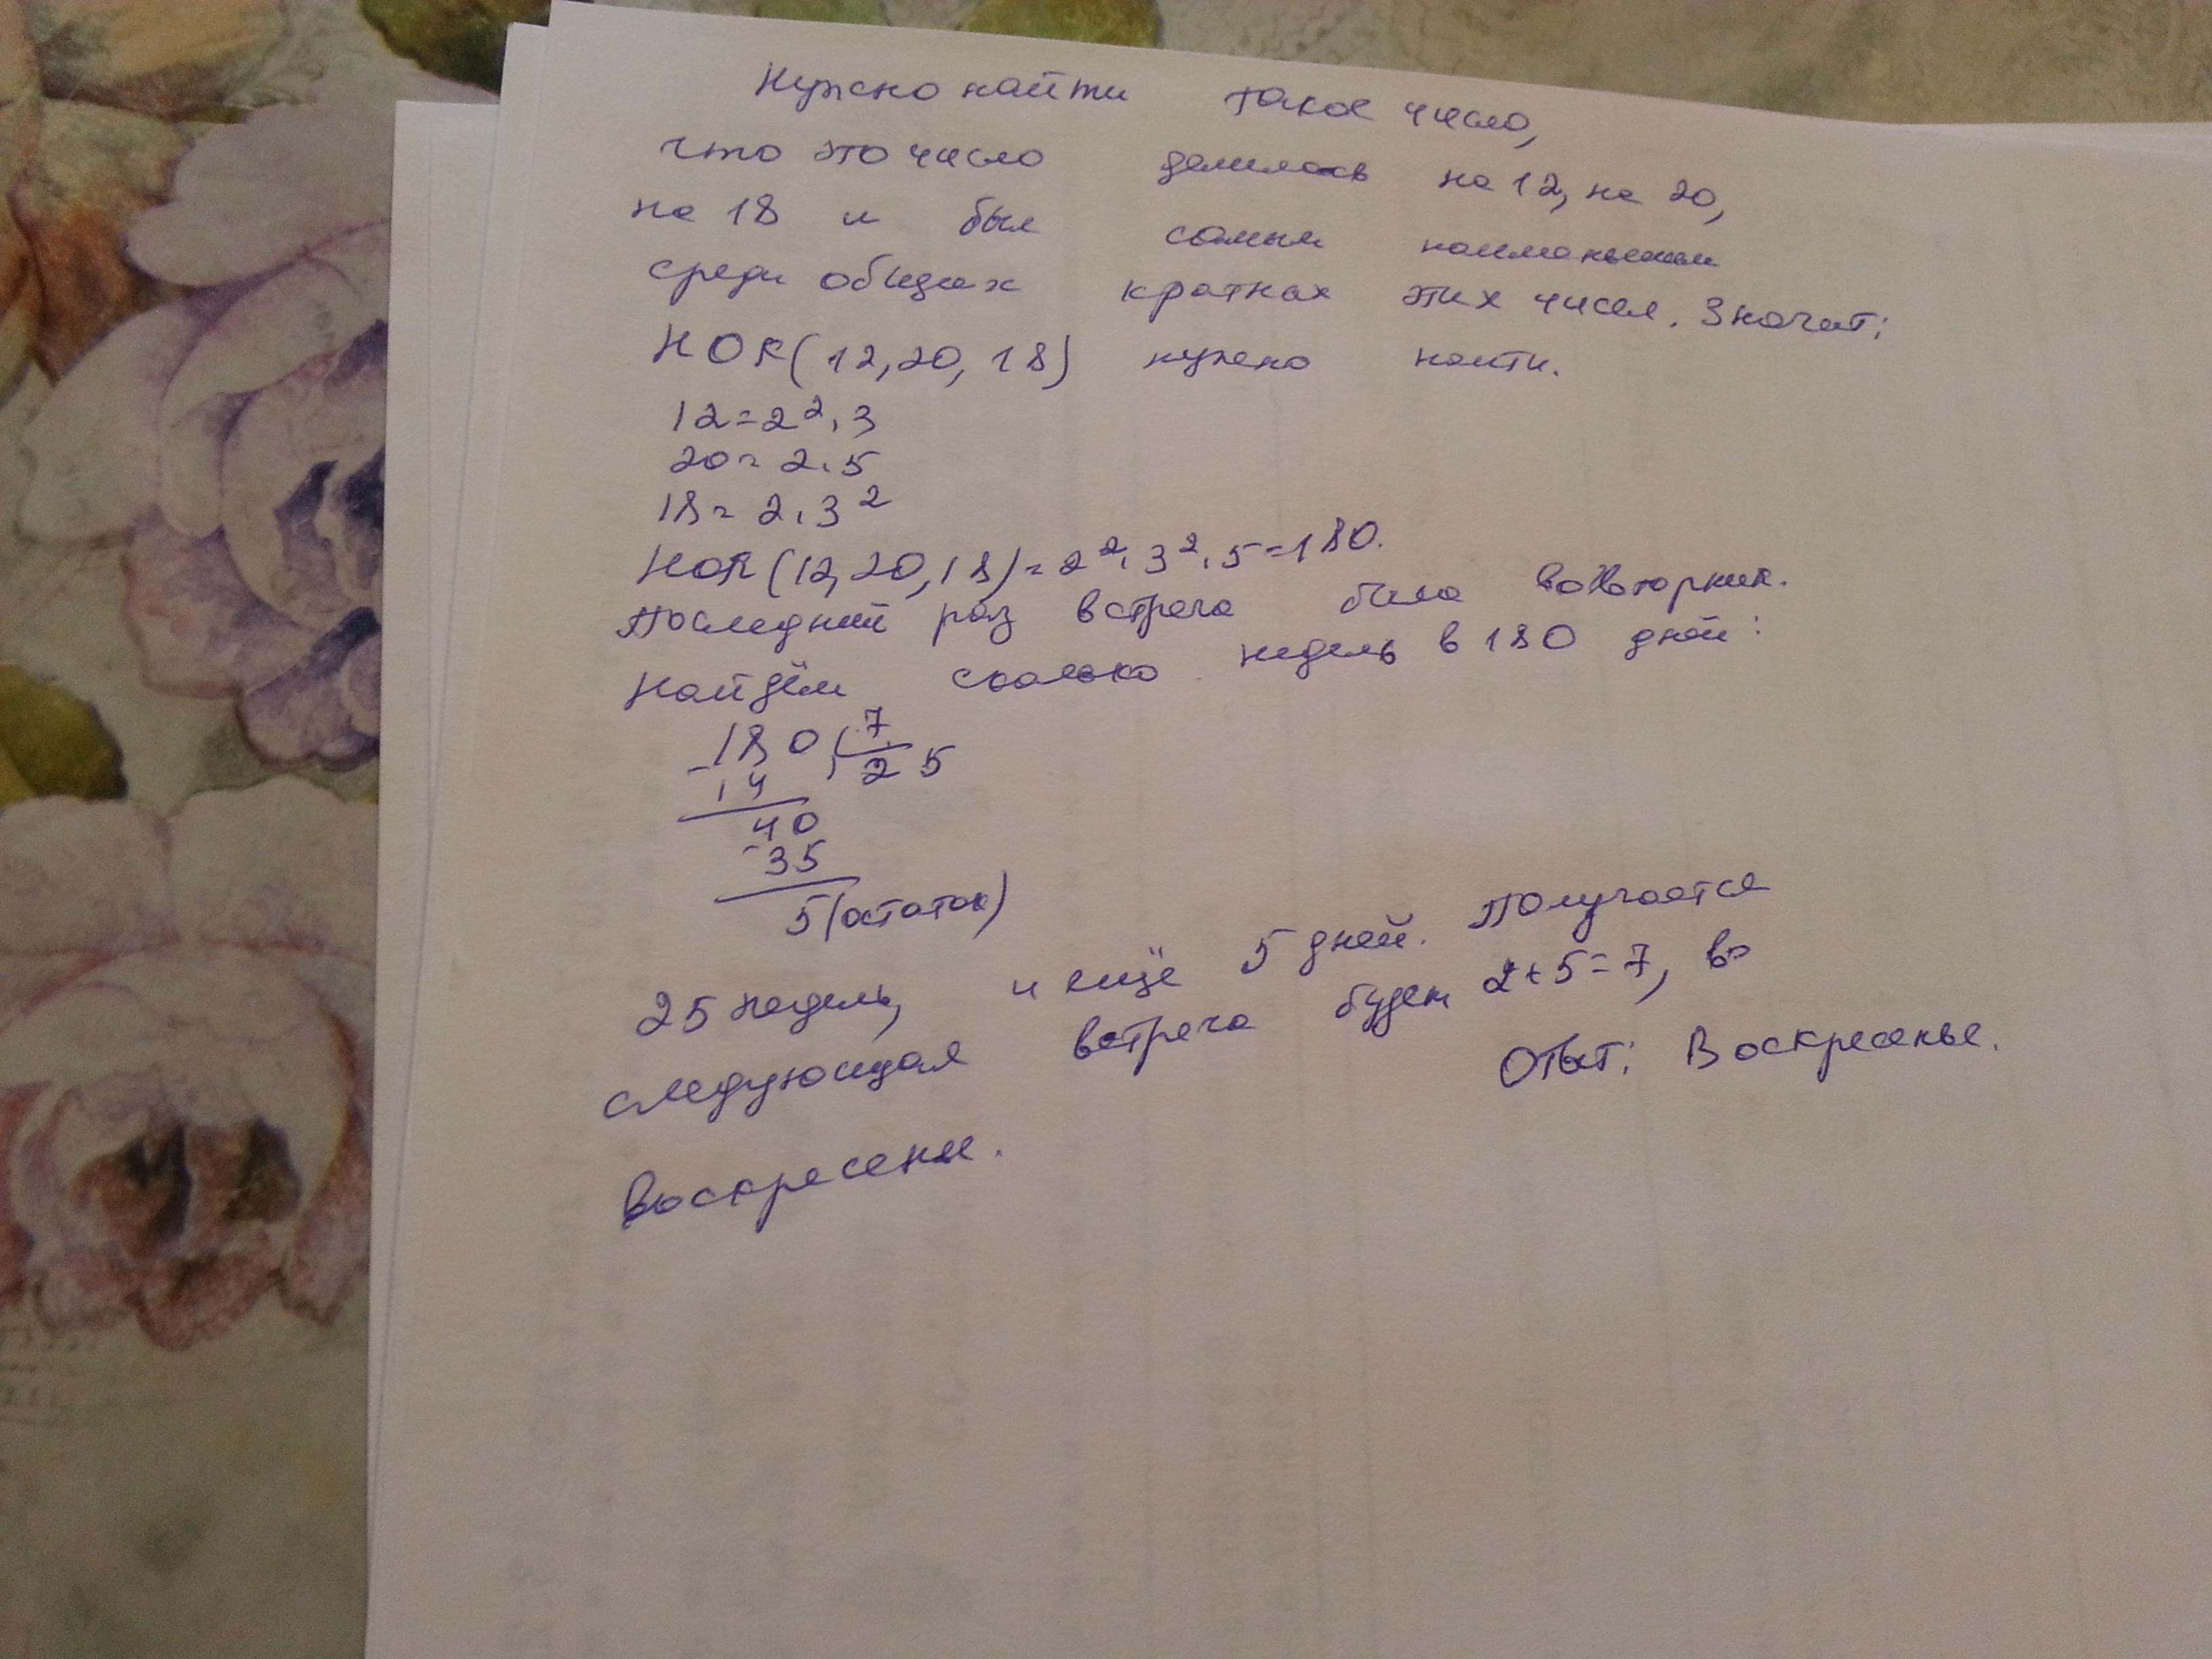 Нужно найти такое число,
что это число делилось на 12, на 20,
на 18 и был самым наименьшим
среди общих кратных этих чисел. Значит:
НОК(12,20,18) нужно найти.
12=2²·3
20=2·5
18=2·3²
НОК(12,20,18)=2²·3²·5=180.
Последний раз встреча была во вторник.
Найдём сколько недель в 180 дней:
180 7
-14 25
40
-35
5(остаток)
25 недель, и ещё 5 дней. Получается
следующая встреча будет 2+5=7, во
Воскресенье.
Ответ: Воскресенье.